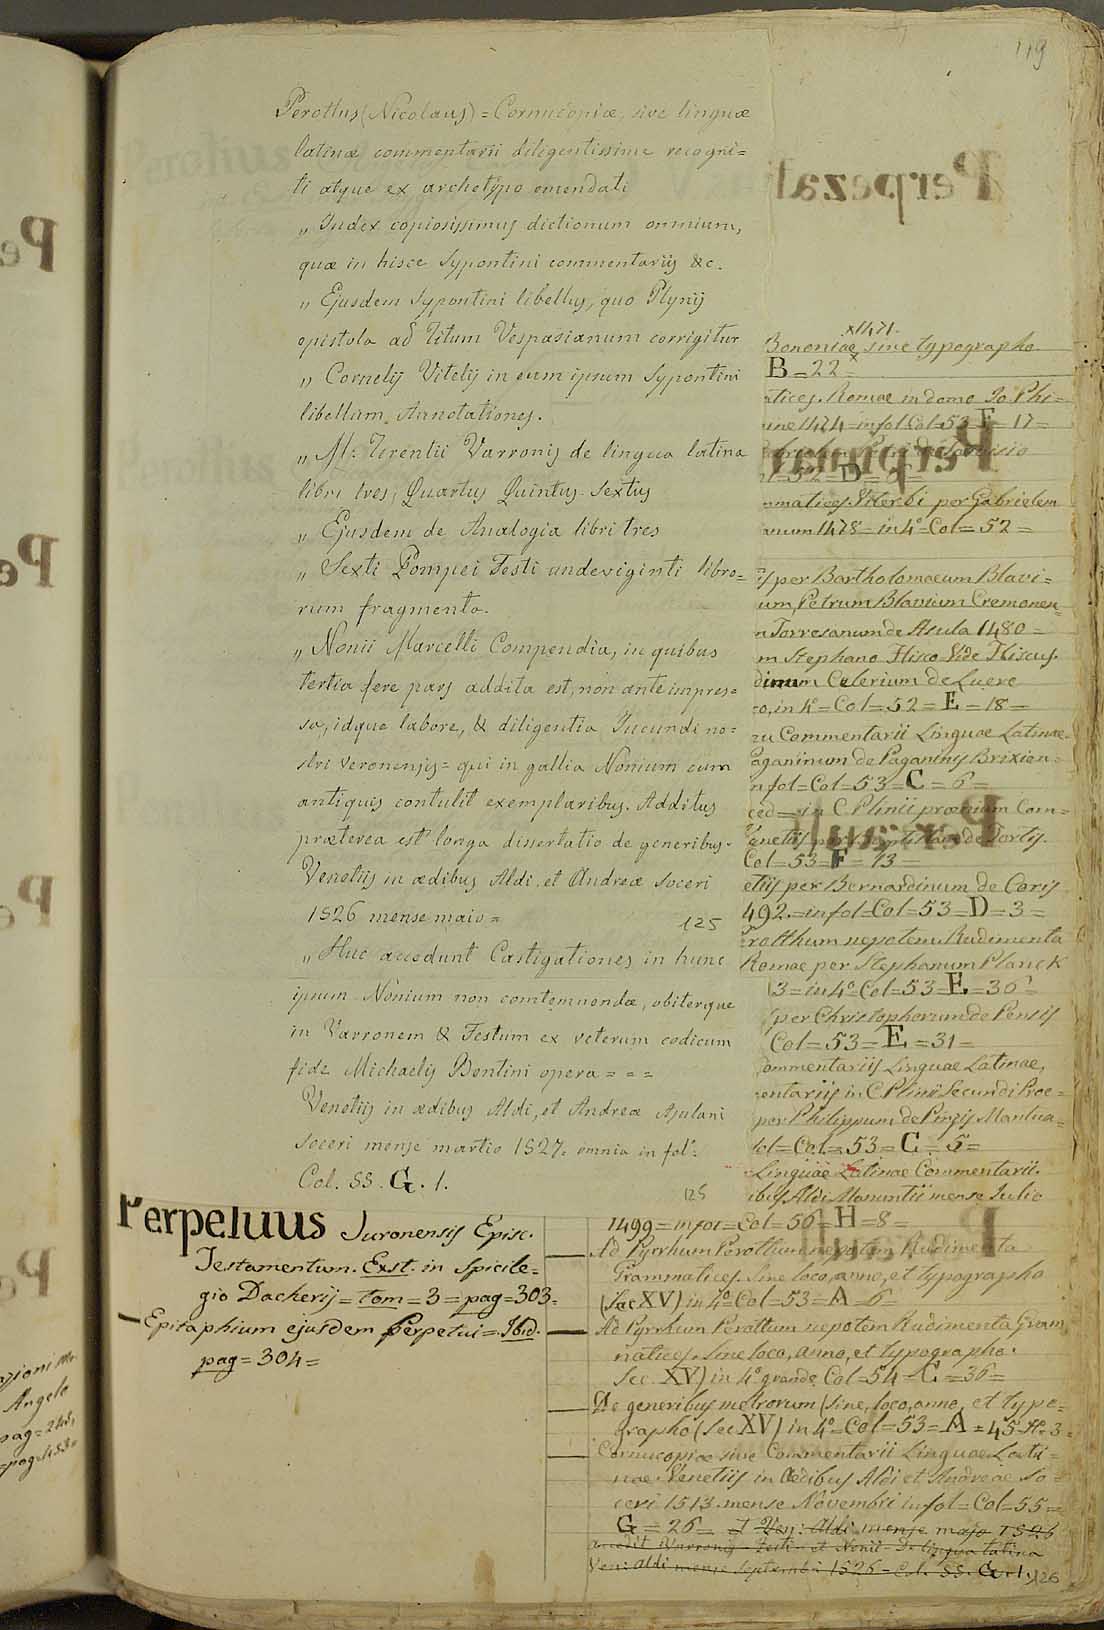 119
Perottus (Nicolaus) = Cornucopiæ, sive linguæ
latinæ commentarii diligentissime recogni=
ti atque ex archetypo emendati
„ Index copiosissimus dictionum omnium,
quæ in hisce Sypontini commentariis &c.
„ Ejusdem Sypontini libellus, quo Plynij
epistola ad Titum Vespasianum corrigitur
„ Cornelij Vitelij in eum ipsum Sypontini
libellum Annotationes.
„ M: Terentii Varronis de lingua latina
libri tres, Quartus Quintus Sextus
„ Ejusdem de Analogia libri tres
„ Sexti Pompei Festi undeviginti libro=
rum fragmenta.
„ Nonii Marcelli Compendia, in quibus
tertia fere pars addita est, non ante impres=
sa, idque labore, & diligentia Jucundi no=
stri veronensis = qui in gallia Nonium cum
antiquis contulit exemplaribus. Additus
præterea est longa dissertatio de generibus.
Venetiis in ædibus Aldi, et Andreæ soceri
1526 mense maio =
125
„ Huc accedunt Castigationes in hunc
ipsum Nonium non contemnendæ, obiterque
in Varronem & Festum ex veterum codicum
fide Michaelis Bentini opera = = =
Venetiis in ædibus Aldi, et Andreæ Asulani
soceri mense martio 1527. omnia in fol:
Col. 55. G. 1.
125
Perpetuus Turonensis Episc.
Testamentum. Exst. in Spicile=
gio Dacherij = tom = 3 = pag = 303.
Epitaphium ejusdem Perpetui = Ibid.
pag = 304 =
x1471.
Bononiae sine typographo
B = 22 =
atices. Romae in domo Jo Phi=
1474 = in fol Col = 53 F = 17 =
52 = D =
mmatices. Viterbi per Gabrielem
anum 1478 = in 4° = Col = 52 =
is per Bartholomaeum Blavi=
um, Petrum Blavium Cremonen
n Torresanum de Asula 1480 =
m Stephano Flisco Vide Fliscus.
Celerium de Luere
co, in 4° = Col = 52 = E = 18 =
Commentarii Linguae Latinae
aganinum de Paganinis Brixien=
n fol = Col = 53 = C = 6 =
ced = in C. Plinii proemium Com=
Venetiis per de Tortis.
Col = 53 = F = 13 =
etiis per Bernardinum de Coris
492. = in fol = Col = 53 = D = 3 =
rotthum nepotem Rudimenta
Romae per Stephanum Planck
3 = in 4° = Col = 53 = E = 36 =
per Christophorum de Pensis
Col = 53 = E = 31 =
ommentariis Linguae Latinae,
entariis in C. Plinii Secundi Proe=
per Philippum de Pinzis Mantua=
fol = Col = 53 = C = 5 =
Linguae Latinae Commentarii.
ibus Aldi Manuntii mense Julio
1499 = in fol = Col = 56 = H = 8 =
Ad Pyrrhum Perottum nepotem Rudimenta
Grammatices. Sine loco, anno, et typographo
(Sec XV) in 4° = Col = 53 = A = 6 =
Ad Pyrrhum Perottum nepotem Rudimenta Gram
matices. Sine loco, anno, et typographo.
Sec. XV) in 4° grande Col = 54 = C = 36 =
De generibus metrorum (sine, loco, anno, et typo=
grapho (Sec XV) in 4° = Col = 53 = A = 45 N° 3 =
Cornucopiae sive Commentarii Linguae Lati=
nae. Venetiis in Ædibus Aldi et Andreae So=
ceri 1513. mense Novembri in fol = Col = 55 =
G = 26 = Ven: Aldi mense majo 1526
accedit Varronis Festi et Nonii De lingua latina
Ven: Aldi mense Septembri 1526 = Col. 55. G. 1. 126
Angelo
pag = 245,